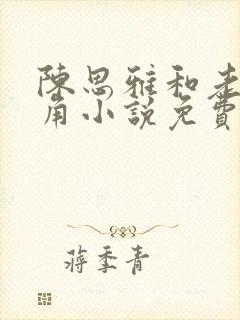 陳思雅和老
角小說免費
蔣季青